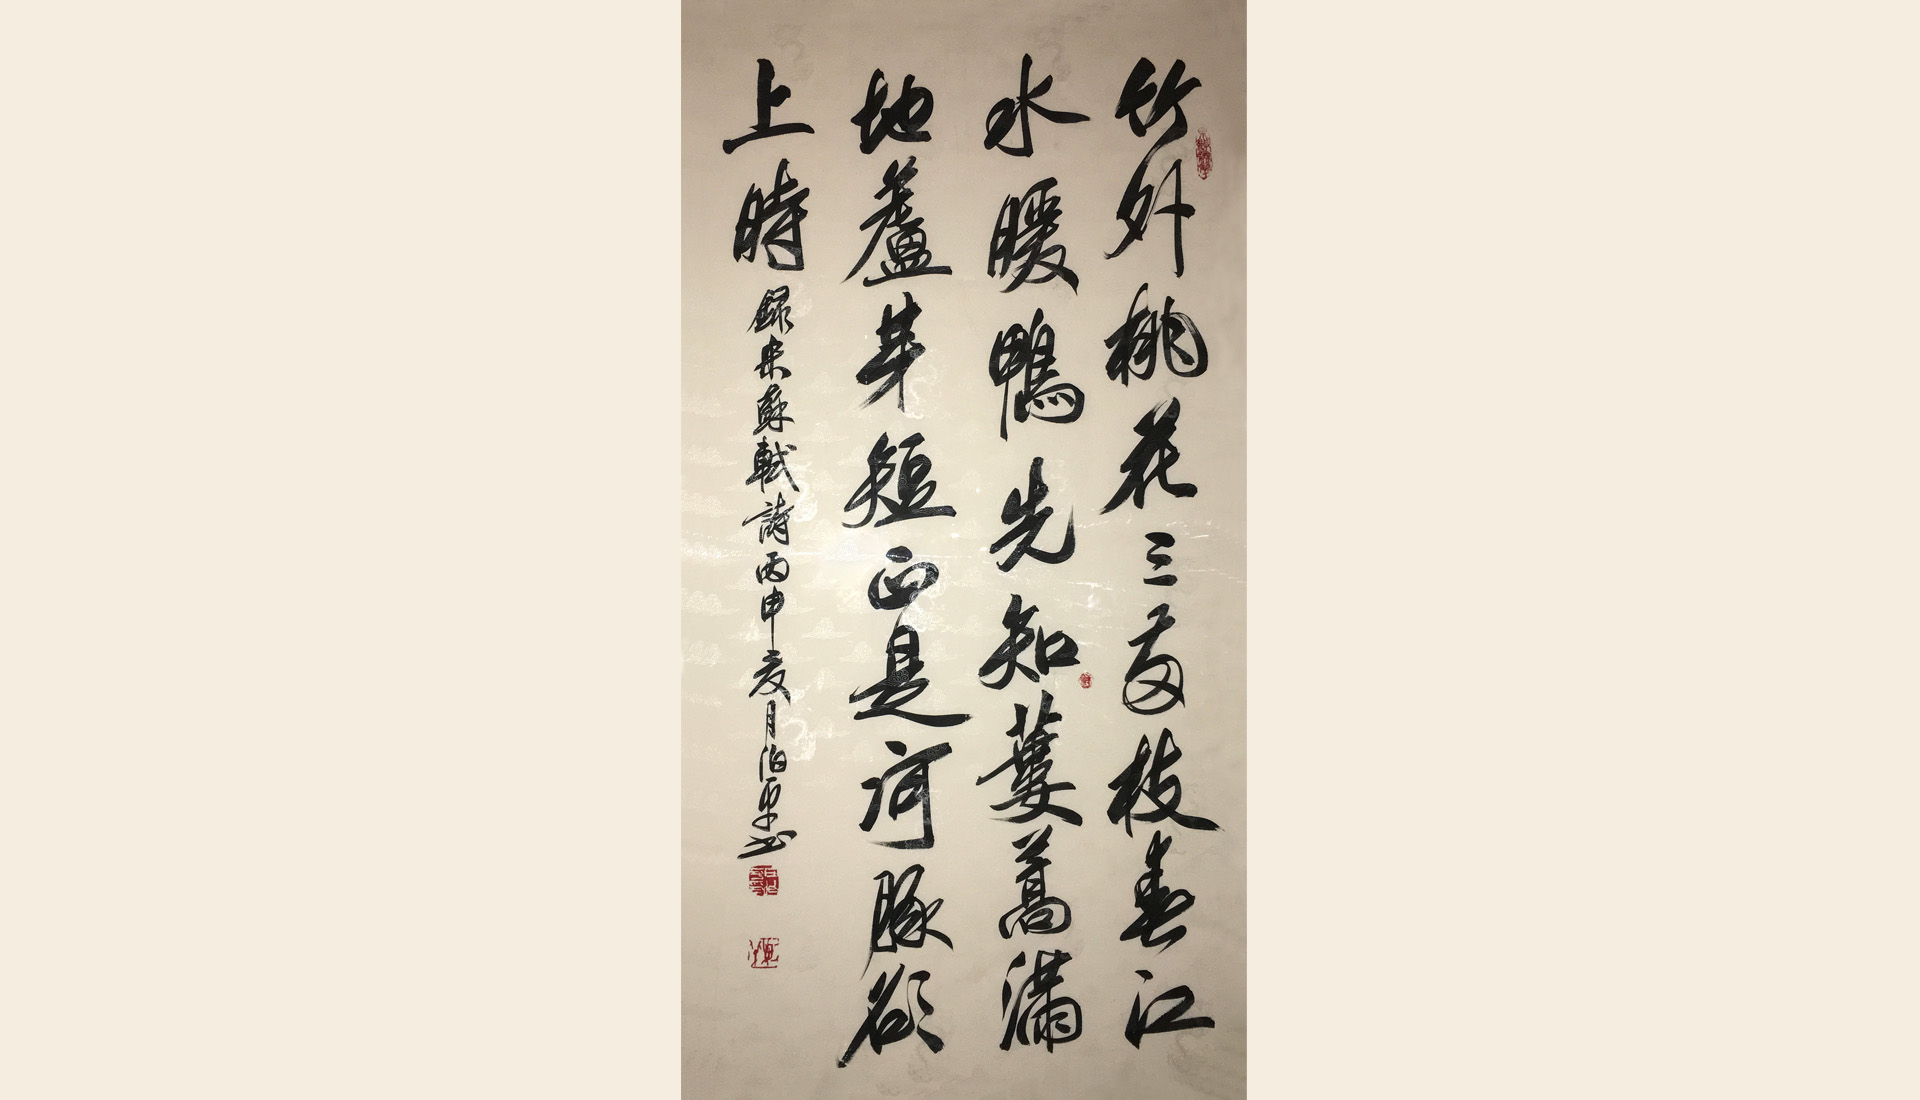 竹外桃花三兩枝春江
水暖鴨先知蔞蒿滿
地蘆芽短正是河豚欲
上時 錄宋蘇軾詩丙申夏月泊